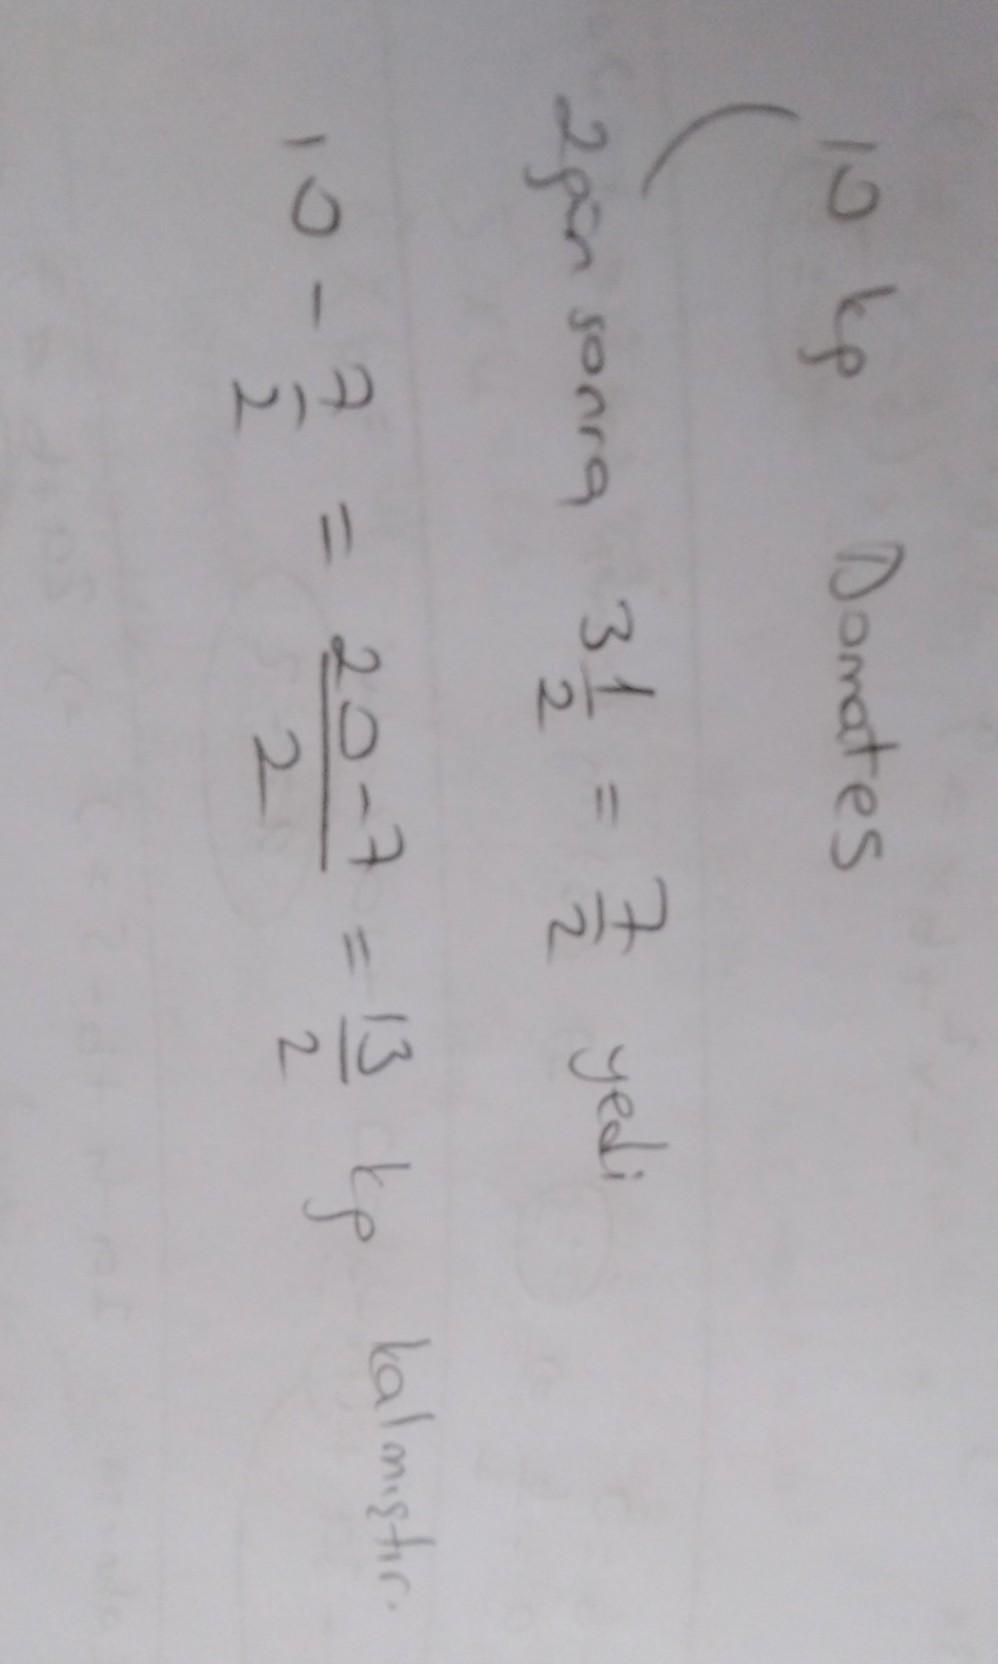 10 kg Domates
2 gün sonra 3 1/2 = 7/2 yedi
10 - 7/2 = 20-7/2 = 13/2 kg kalmıştır.